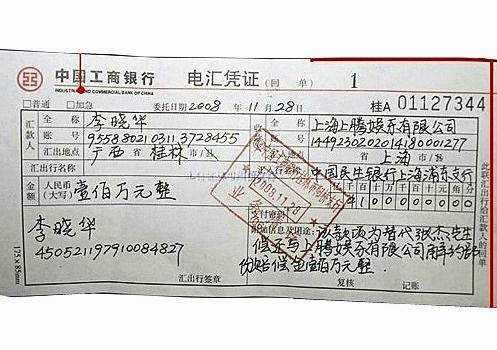 中国工商银行 电汇凭证(回单) 1
INDUSTRIAL AND COMMERCIAL BANK OF CHINA
□普通 □加急 委托日期2008年11月28日 桂A 01127344
汇款人 全称 李晓华 全称 上海上腾娱乐有限公司
账号 9558802103113728455 1449230202014180001277
汇出地点 广西省桂林市/县 省上海市/县
汇出行名称 中国民生银行上海浦东支行
金额 人民币(大写) 壹佰万元整 千百十万千百十元角分
2008.11.28
业务
支付密码
李晓华 附加信息及用途: 该款项为替代张杰先生
450521197910084827
上腾娱乐有限公司
赔偿金壹佰万元整
汇出行签章 复核 记账
此联汇出行给汇款人的回单
175×85mm